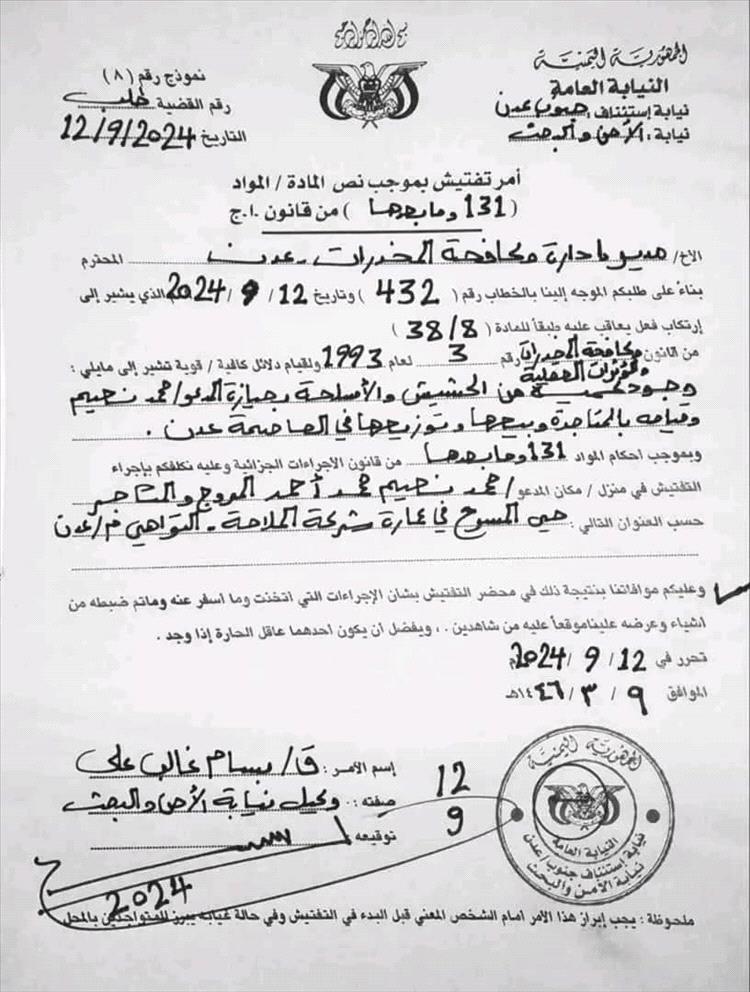 بسم الله الرحمن الرحيم
الجمهورية اليمنية
النيابة العامة
نيابة إستئناف: جنوب عدن
نيابة: الأمن والبحث
نموذج رقم (٨)
رقم القضية طلب
التاريخ 12/9/2024
أمر تفتيش بموجب نص المادة / المواد
(131 وما بعدها) من قانون ا.ج
الاخ/ مدير إدارة مكافحة المخدرات - عدن المحترم
بناءً على طلبكم الموجه إلينا بالخطاب رقم (432) وتاريخ 12/9/2024م الذي يشير إلى
إرتكاب فعل يعاقب عليه طبقاً للمادة (38/8)
من قانون مكافحة المخدرات والمؤثرات العقلية رقم 3 لعام 1993 ولقيام دلائل كافية / قوية تشير إلى مايلي:
وجود كمية من الحشيش والأسلحة بحيازة المدعو/ محمد نعيم
وقيامه بالمتاجرة وبيعها وتوزيعها في العاصمة عدن.
وبموجب أحكام المواد 131 وما بعدها من قانون الإجراءات الجزائية وعليه نكلفكم بإجراء
التفتيش في منزل / مكان المدعو/ محمد نعيم محمد أحمد المروج والتاجر
حسب العنوان التالي: حي المسرح في عمارة شركة الملاحة - التواهي م/عدن
وعليكم موافاتنا بنتيجة ذلك في محضر التفتيش بشان الإجراءات التي اتخذت وما اسفر عنه وماتم ضبطه من
اشياء وعرضه علينا موقعاً عليه من شاهدين ، ويفضل أن يكون أحدهما عاقل الحارة إذا وجد.
تحرر في 12/9/2024م
الموافق ٩/٣/١٤٤٦هـ
إسم الآمر: ق/ بسام غالب علي
صفته: وكيل نيابة الأمن والبحث
توقيعه
12
9
2024
الجمهورية اليمنية
النيابة العامة
نيابة إستئناف جنوب/عدن
نيابة الأمن والبحث
ملحوظة: يجب إبراز هذا الأمر امام الشخص المعني قبل البدء في التفتيش وفي حالة غيابه يبرز للمتواجدين بالمحل